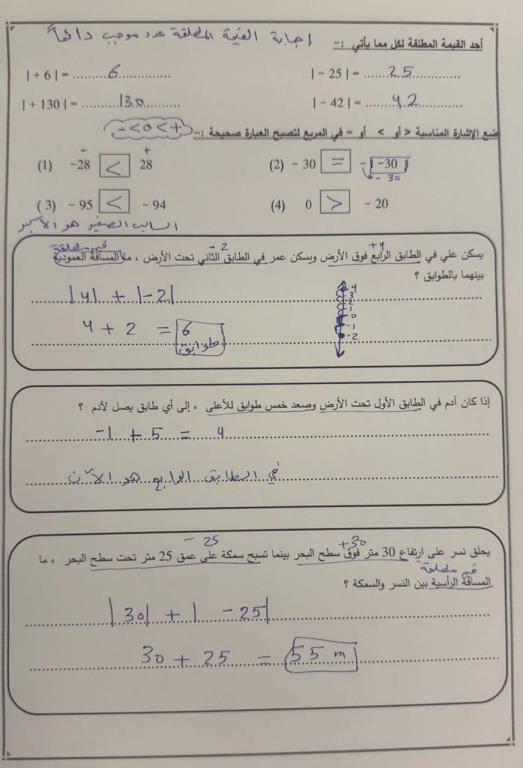 إجابة القيمة المطلقة عدد موجب دائماً
أجد القيمة المطلقة لكل مما يأتي :-
| + 6 | = ........ 6 ........ | − 25 | = ........ 25 ........
| + 130 | = ........ 130 ........ | − 42 | = ........ 42 ........
ضع الإشارة المناسبة < أو > أو = في المربع لتصبح العبارة صحيحة :- − < 0 < +
− +
(1) −28 < 28 (2) − 30 = − | −30 |
− 30
(3) − 95 < − 94 (4) 0 > − 20
السالب الصغير هو الأكبر
+4 −2
يسكن علي في الطابق الرابع فوق الأرض ويسكن عمر في الطابق الثاني تحت الأرض ، ما المسافة العمودية
قيم مطلقة
بينهما بالطوابق ؟
|4| + |-2|
4
3
2
1
0
-1
-2
4 + 2 = 6
طوابق
إذا كان آدم في الطابق الأول تحت الأرض وصعد خمس طوابق للأعلى ، إلى أي طابق يصل لآدم ؟
-1 + 5 = 4
في الطابق الرابع هو الآن
+30 − 25
يحلق نسر على ارتفاع 30 متر فوق سطح البحر بينما تسبح سمكة على عمق 25 متر تحت سطح البحر ، ما
قيم مطلقة
المسافة الرأسية بين النسر والسمكة ؟
|30| + | -25|
30 + 25 = 55 m